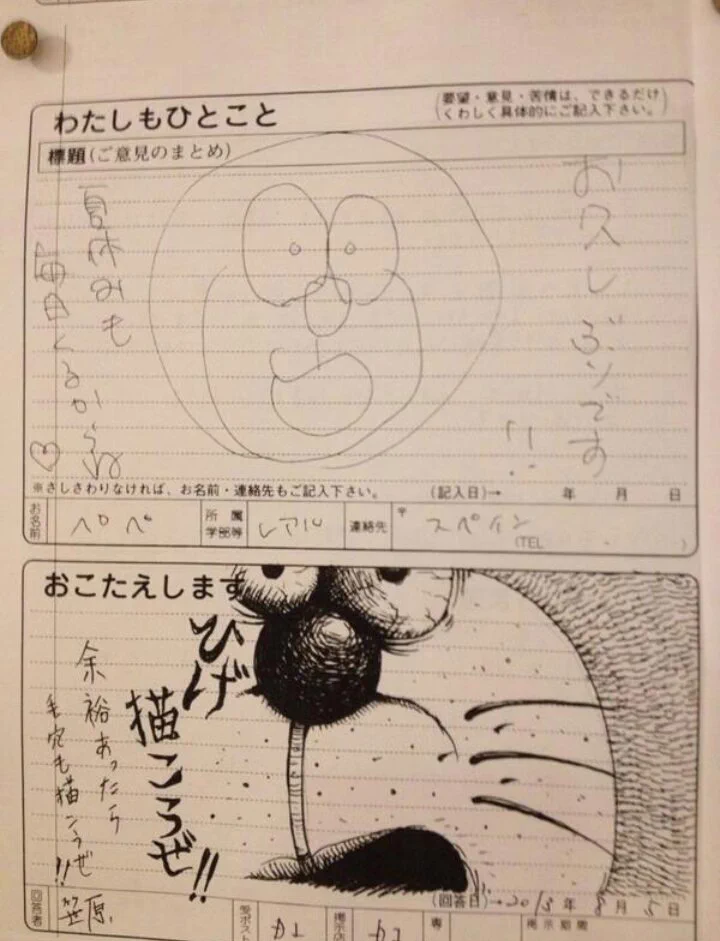 わたしもひとこと
(要望・意見・苦情は、できるだけ
くわしく具体的にご記入下さい。)
標題(ご意見のまとめ)
お久しぶりです
!!
夏休みも
毎日くるからね
♡
※さしさわりなければ、お名前・連絡先もご記入下さい。 (記入日)→ 年 月 日
お名前 ペペ 所属学部等 レアル 連絡先 〒 スペイン
(TEL )
おこたえします
ひげ
描こうぜ!!
余裕あったら
毛穴も描こうぜ!!
(回答日)→2013年 8月 5日
回答者 笠原
掲示期間